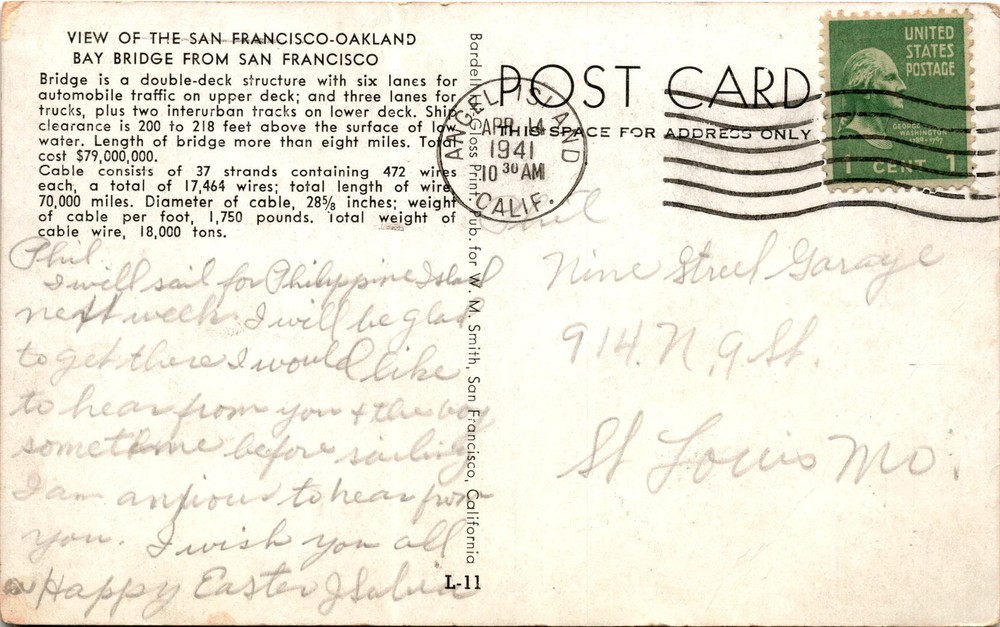 VIEW OF THE SAN FRANCISCO-OAKLAND
BAY BRIDGE FROM SAN FRANCISCO
Bridge is a double-deck structure with six lanes for
automobile traffic on upper deck; and three lanes for
trucks, plus two interurban tracks on lower deck. Ship
clearance is 200 to 218 feet above the surface of low
water. Length of bridge more than eight miles. Total
cost $79,000,000.
Cable consists of 37 strands containing 472 wires
each, a total of 17,464 wires; total length of wire
70,000 miles. Diameter of cable, 28⅝ inches; weight
of cable per foot, 1,750 pounds. Total weight of
cable wire, 18,000 tons.
Phil.
I will sail for Philippine Island
next week. I will be glad
to get there I would like
to hear from you & the boys
sometime before sailing
I am anxious to hear from
you. I wish you all
a Happy Easter
Bardell Gloss Print. Pub. for W. M. Smith, San Francisco, California
L-11
POST CARD
THIS SPACE FOR ADDRESS ONLY
ANGEL ISLAND
APR 14
1941
10 30 AM
CALIF.
UNITED
STATES
POSTAGE
GEORGE
WASHINGTON
1789-1797
1 CENT 1
Nine Street Garage
914. N. 9 St.
St Louis Mo.